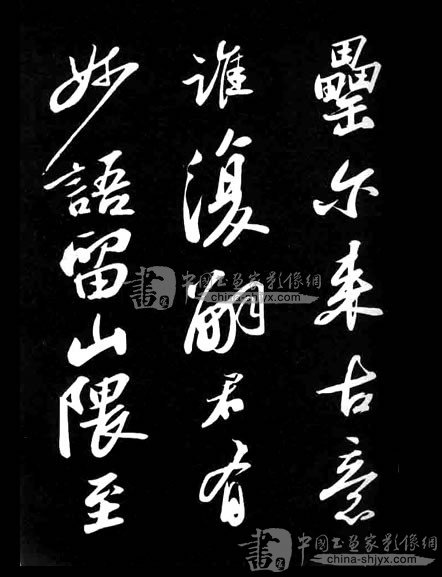 罍尔来古意
誰復嗣君有
妙語留山隈至
中國书画家影像網
china-shjyx.com
中國书画家影像網
china-shjyx.com